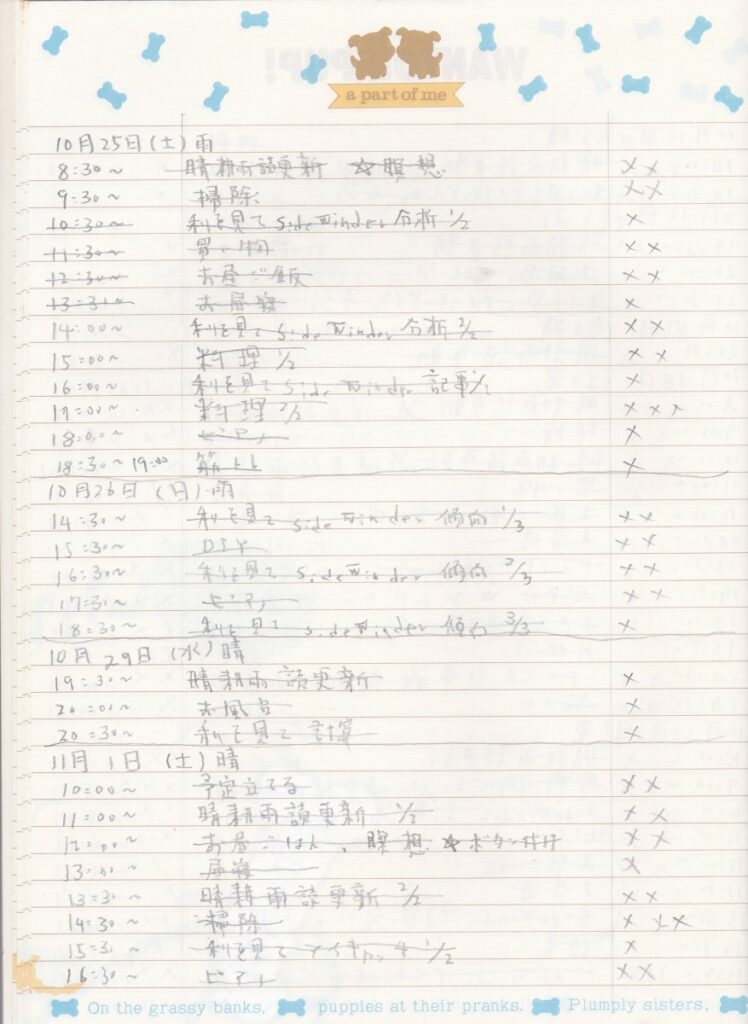 a part of me
10月25日(土)雨
8:30~ 晴耕雨読更新 ☆瞑想 ××
9:30~ 掃除 ××
10:30~ 利を見て side Winder 分析 1/2 ×
11:30~ 買い物 ××
12:30~ お昼ご飯 ××
13:30~ お昼寝 ×
14:00~ 利を見て side Winder 分析 2/2 ××
15:00~ 料理 1/2 ××
16:00~ 利を見て side Winder 記事 1/1 ×
17:00~ 料理 2/2 ×××
18:00~ ピアノ ×
18:30~19:00 筋トレ ×
10月26日(日)雨
14:30~ 利を見て side Winder 傾向 1/3 ××
15:30~ DIY ××
16:30~ 利を見て side Winder 傾向 2/3 ××
17:30~ ピアノ ××
18:30~ 利を見て side Winder 傾向 3/3 ×
10月29日(水)晴
19:30~ 晴耕雨読更新 ×
20:00~ お風呂 ×
20:30~ 利を見て 計算 ×
11月1日(土)晴
10:00~ 予定立てる ××
11:00~ 晴耕雨読更新 1/2 ××
12:00~ お昼ごはん、瞑想 ☆ボタン付け ××
13:00 昼寝 ×
13:30~ 晴耕雨読更新 2/2 ××
14:30~ 掃除 ×××
15:30~ 利を見て 1/2 ×
16:30~ ピアノ ××
On the grassy banks, puppies at their pranks. Plumply sisters,